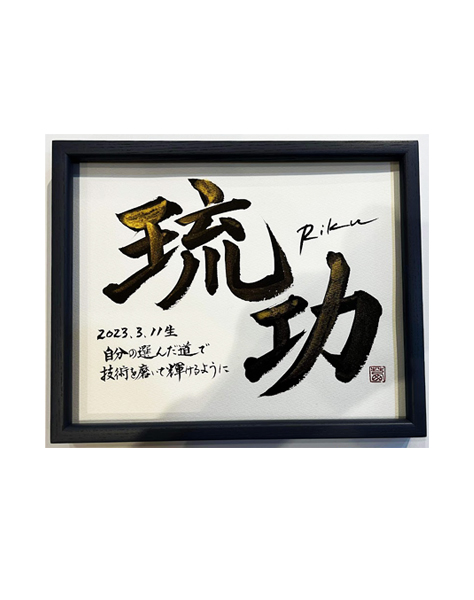 琉功
Riku
2023.3.11生
自分の選んだ道で
技術を磨いて輝けるように